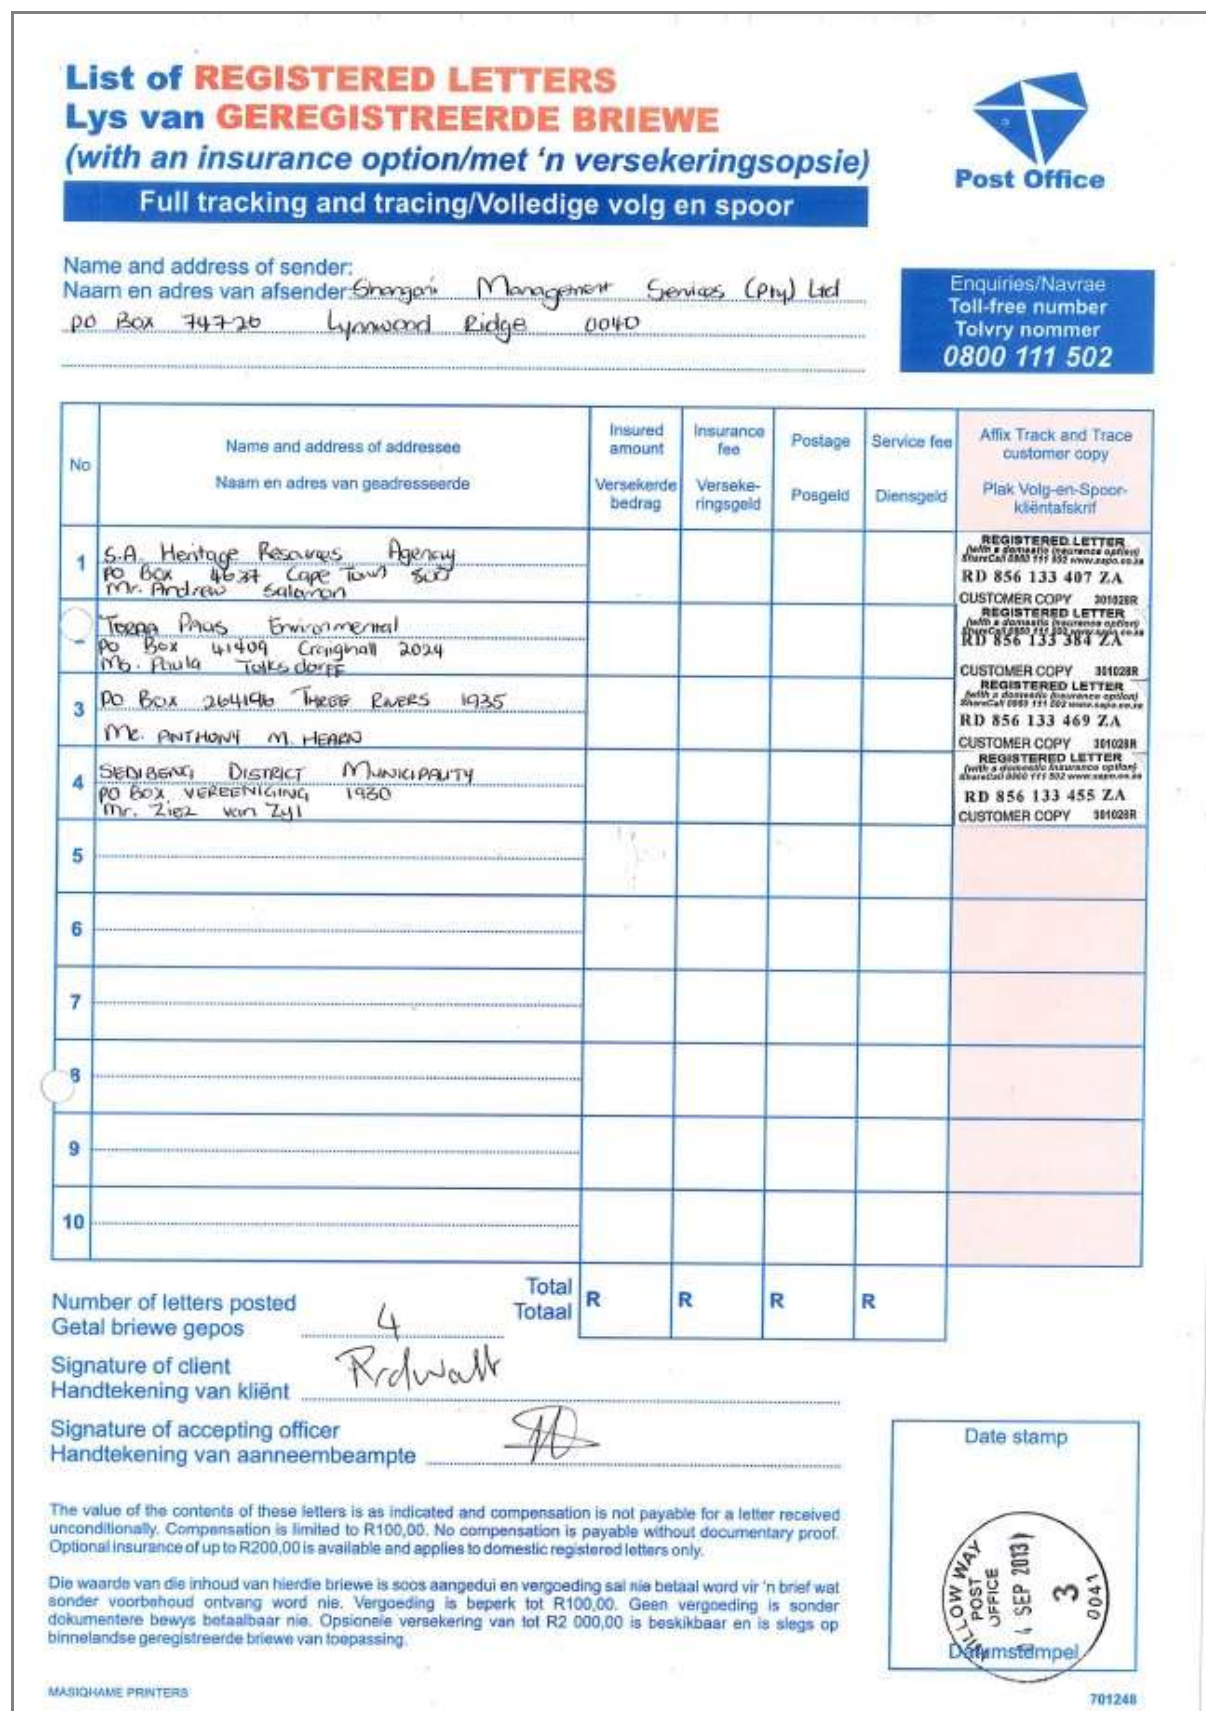 List of REGISTERED LETTERS
Lys van GEREGISTREERDE BRIEWE
(with an insurance option/met 'n versekeringsopsie)
Full tracking and tracing/Volledige volg en spoor
Post Office
Name and address of sender:
Naam en adres van afsender: Shangoni Management Services (Pty) Ltd
PO Box 74726 Lynnwood Ridge 0040
Enquiries/Navrae
Toll-free number
Tolvry nommer
0800 111 502
No
Name and address of addressee
Naam en adres van geadresseerde
Insured amount
Versekerde bedrag
Insurance fee
Versekeringsgeld
Postage
Posgeld
Service fee
Diensgeld
Affix Track and Trace customer copy
Plak Volg-en-Spoor-kliëntafskrif
1
S.A. Heritage Resources Agency
PO Box 4637 Cape Town
Mr. Andrew Salomon
REGISTERED LETTER
(with a domestic insurance option)
ShareCall 0860 111 502 www.sapo.co.za
RD 856 133 407 ZA
CUSTOMER COPY 301028R
Environmental
PO Box 41409 Craighall 2024
Ms. Paula Tolksdorff
REGISTERED LETTER
(with a domestic insurance option)
ShareCall 0860 111 502 www.sapo.co.za
RD 856 133 384 ZA
CUSTOMER COPY 301028R
3
PO Box 264146 THREE RIVERS 1935
Mr. ANTHONY M. HEARN
REGISTERED LETTER
(with a domestic insurance option)
ShareCall 0860 111 502 www.sapo.co.za
RD 856 133 469 ZA
CUSTOMER COPY 301028R
4
SEDIBENG DISTRICT MUNICIPALITY
PO BOX VEREENIGING 1930
Mr. Ziez van Zyl
REGISTERED LETTER
(with a domestic insurance option)
ShareCall 0860 111 502 www.sapo.co.za
RD 856 133 455 ZA
CUSTOMER COPY 301028R
5
6
7
8
9
10
Number of letters posted
Getal briewe gepos
4
Total
Totaal
R
R
R
R
Signature of client
Handtekening van kliënt
Signature of accepting officer
Handtekening van aanneembeampte
The value of the contents of these letters is as indicated and compensation is not payable for a letter received
unconditionally. Compensation is limited to R100,00. No compensation is payable without documentary proof.
Optional insurance of up to R200,00 is available and applies to domestic registered letters only.
Die waarde van die inhoud van hierdie briewe is soos aangedui en vergoeding sal nie betaal word vir 'n brief wat
sonder voorbehoud ontvang word nie. Vergoeding is beperk tot R100,00. Geen vergoeding is sonder
dokumentere bewys betaalbar nie. Opsionele versekering van tot R2 000,00 is beskikbaar en is slegs op
binnelandse geregistreerde briewe van toepassing.
Date stamp
WILLOW WAY
POST OFFICE
04 SEP 2013
3
0041
Datumstempel
MASIQHAME PRINTERS
701248